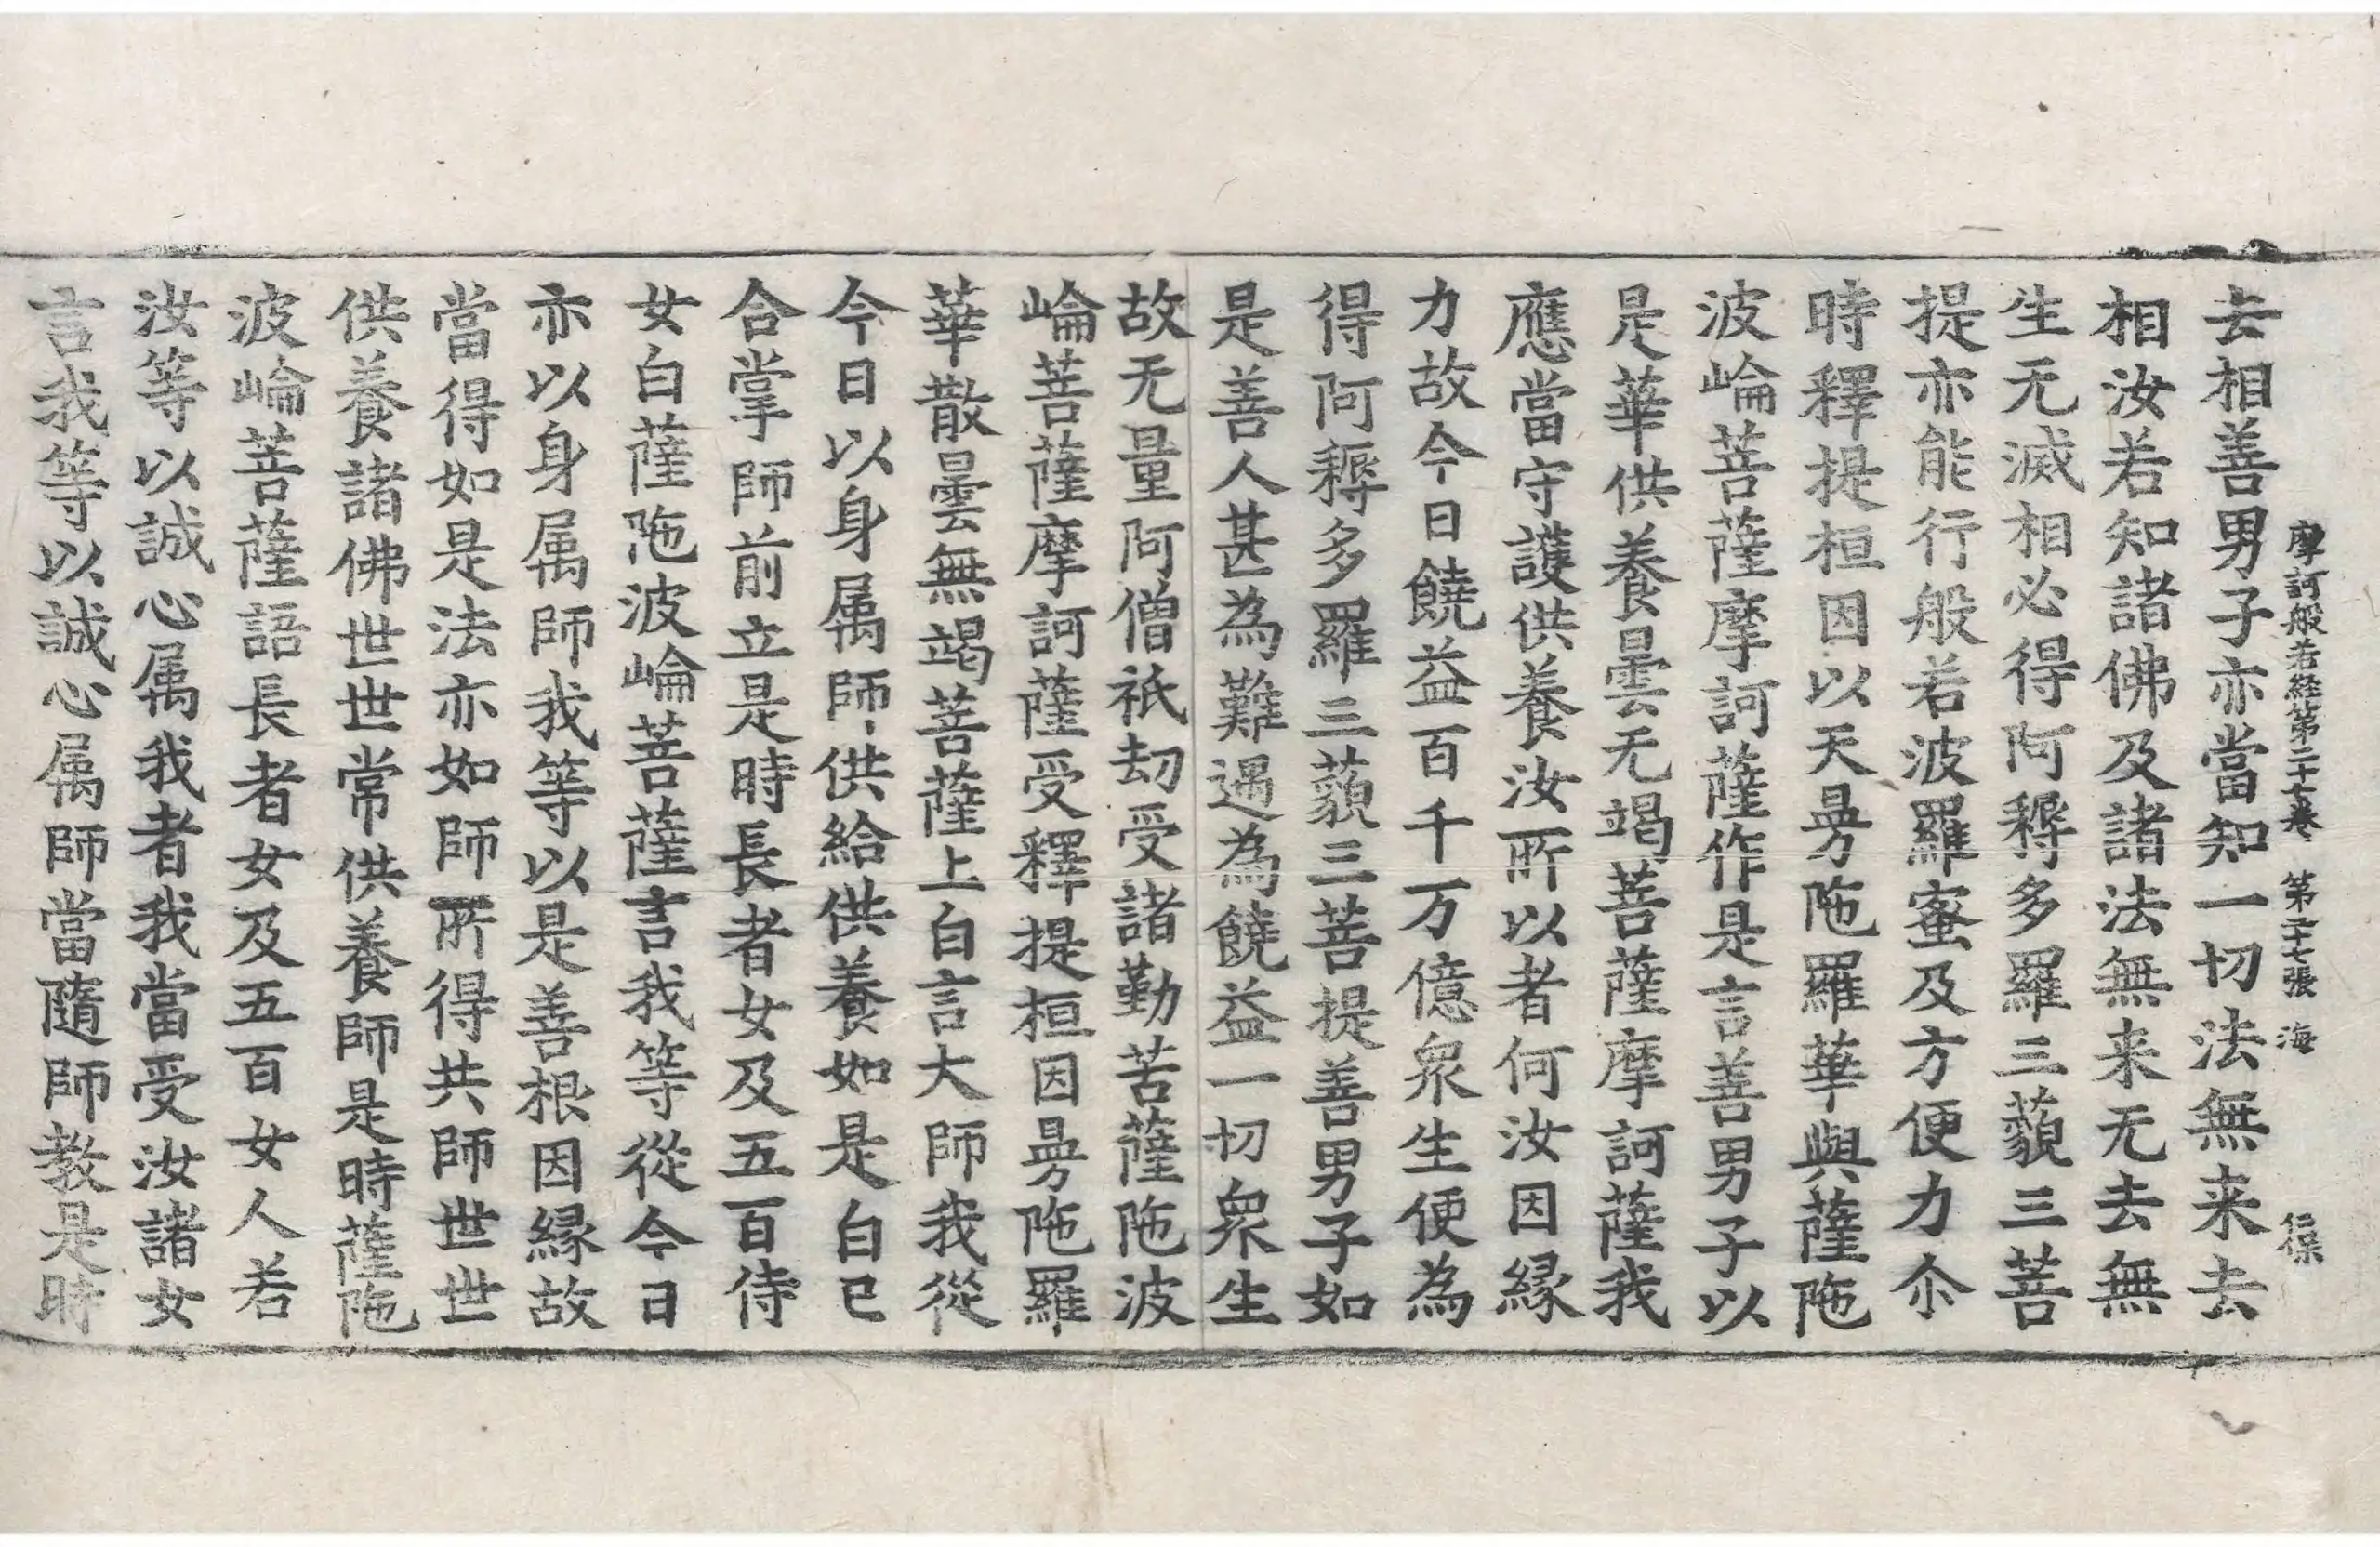 摩訶般若経第二十七巻 第二十七張 海
去相善男子亦當知一切法無来去
相汝若知諸佛及諸法無来无去無
生无滅相必得阿耨多羅三藐三菩
提亦能行般若波羅蜜及方便力尒
時釋提桓因以天曼陁羅華與薩陁
波崘菩薩摩訶薩作是言善男子以
是華供養曇无竭菩薩摩訶薩我
應當守護供養汝所以者何汝因緣
力故今日饒益百千万億衆生便為
得阿耨多羅三藐三菩提善男子如
是善人甚為難遇為饒益一切衆生
故无量阿僧祇劫受諸勤苦薩陁波
崘菩薩摩訶薩受釋提桓因曼陁羅
華散曇無竭菩薩上白言大師我從
今日以身属師供給供養如是白已
合掌師前立是時長者女及五百侍
女白薩陁波崘菩薩言我等從今日
亦以身属師我等以是善根因緣故
當得如是法亦如師所得共師世世
供養諸佛世世常供養師是時薩陁
波崘菩薩語長者女及五百女人若
汝等以誠心属我者我當受汝諸女
言我等以誠心属師當隨師教是時